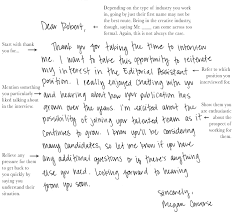 Depending on the type of industry you work
in, going by just their first name may not be
the best route. Being in the creative industry,
though, saying Mr. ___ can come across too
formal. Again, this is not always the case.
Dear Robert,
Start with thank
you for...
Thank you for taking the time to interview
me. I want to take this opportunity to reiterate
my interest in the Editorial Assistant
position. I really enjoyed chatting with you
and hearing about how your publication has
grown over the years. I'm excited about the
possibility of joining your talented team as it
continues to grow. I know you'll be considering
many candidates, so let me know if you have
any additional questions or if there's anything
else you need. Looking forward to hearing
from you soon.
Refer to which
position you
interviewed for.
Mention something
you particularly
liked talking about
in the interview.
Show them you
are enthusiastic
about the
prospect of
working for them.
Relieve any
pressure for them
to get back to
you quickly by
saying you
understand their
situation.
Sincerely,
Megan